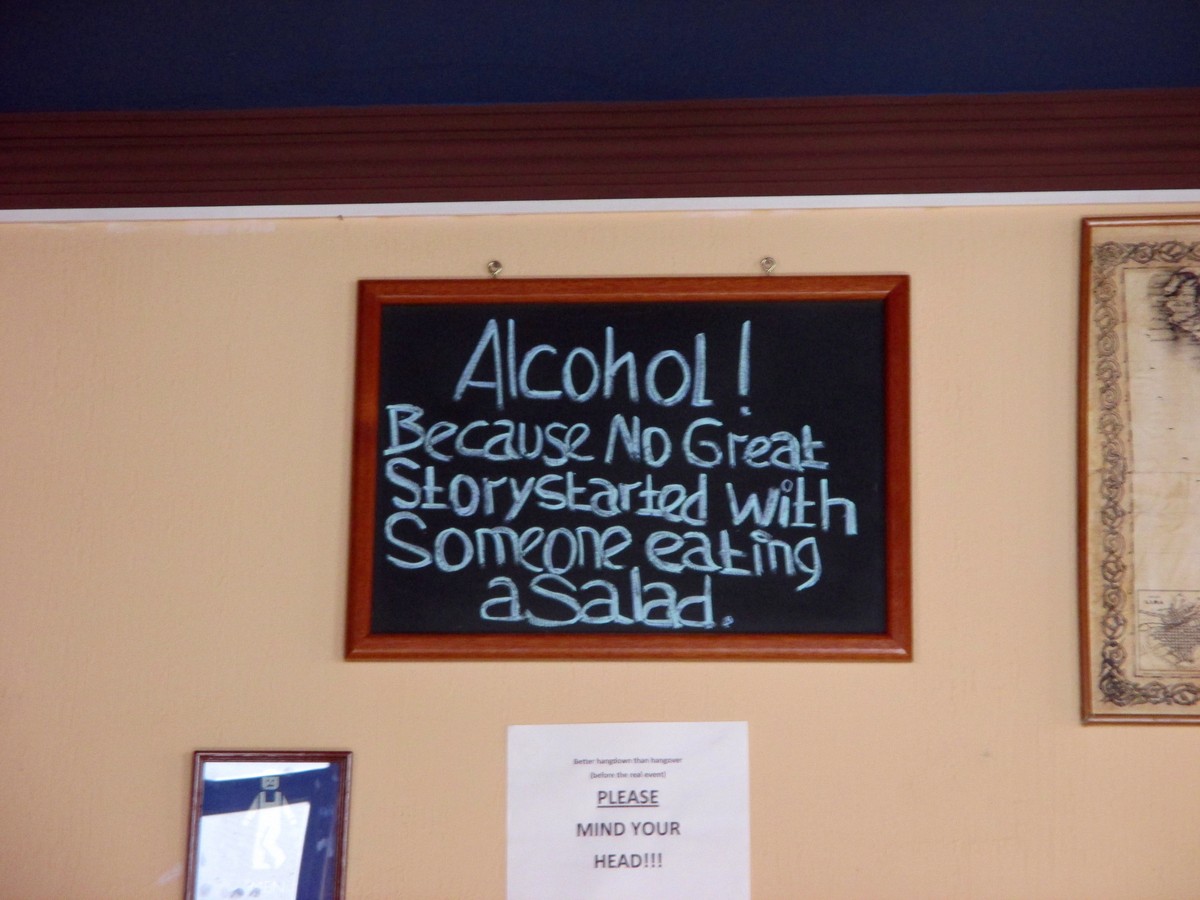 Alcohol!
Because No Great
Story started with
Someone eating
a Salad.
Better hangdown than hangover
(before the real event)
PLEASE
MIND YOUR
HEAD!!!